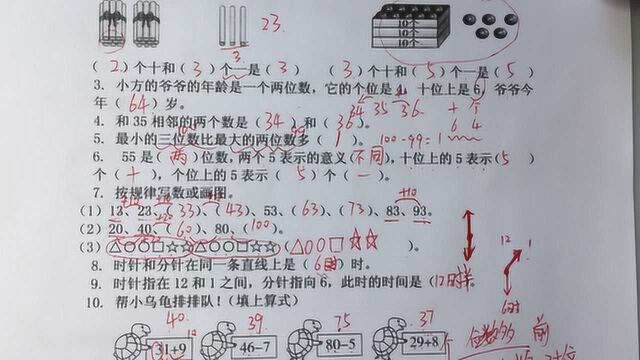 23.
10个
10个
10个
3
( 2 )个十和( 3 )个一是( 3 ) ( 3 )个十和( 5 )个一是( 5 )
3. 小方的爷爷的年龄是一个两位数，它的个位是4，十位上是6，爷爷今
年( 64 )岁。 34 35 36 十 个
4. 和 35 相邻的两个数是( 34 )和( 36 )。 6 4
5. 最小的三位数比最大的两位数多( 1 )。 100-99=1
6. 55 是( 两 )位数，两个 5 表示的意义(不同)，十位上的 5 表示( 5 )
个( 十 )，个位上的 5 表示( 5 )个( 一 )。
7. 按规律写数或画图。 +10
(1) 13、23、( 33 )、( 43 )、53、( 63 )、( 73 )、83、93。
(2) 20、40、( 60 )、80、( 100 )。
(3) △○○□☆☆△○○□☆☆(△○○□☆☆)。
8. 时针和分针在同一条直线上是( 6时 )时。 12 1
9. 时针指在 12 和 1 之间，分针指向 6，此时的时间是(12时半)。 6时
10. 帮小乌龟排排队！(填上算式)
40 39 75 37 位数多 前
31+9 46-7 80-5 29+8